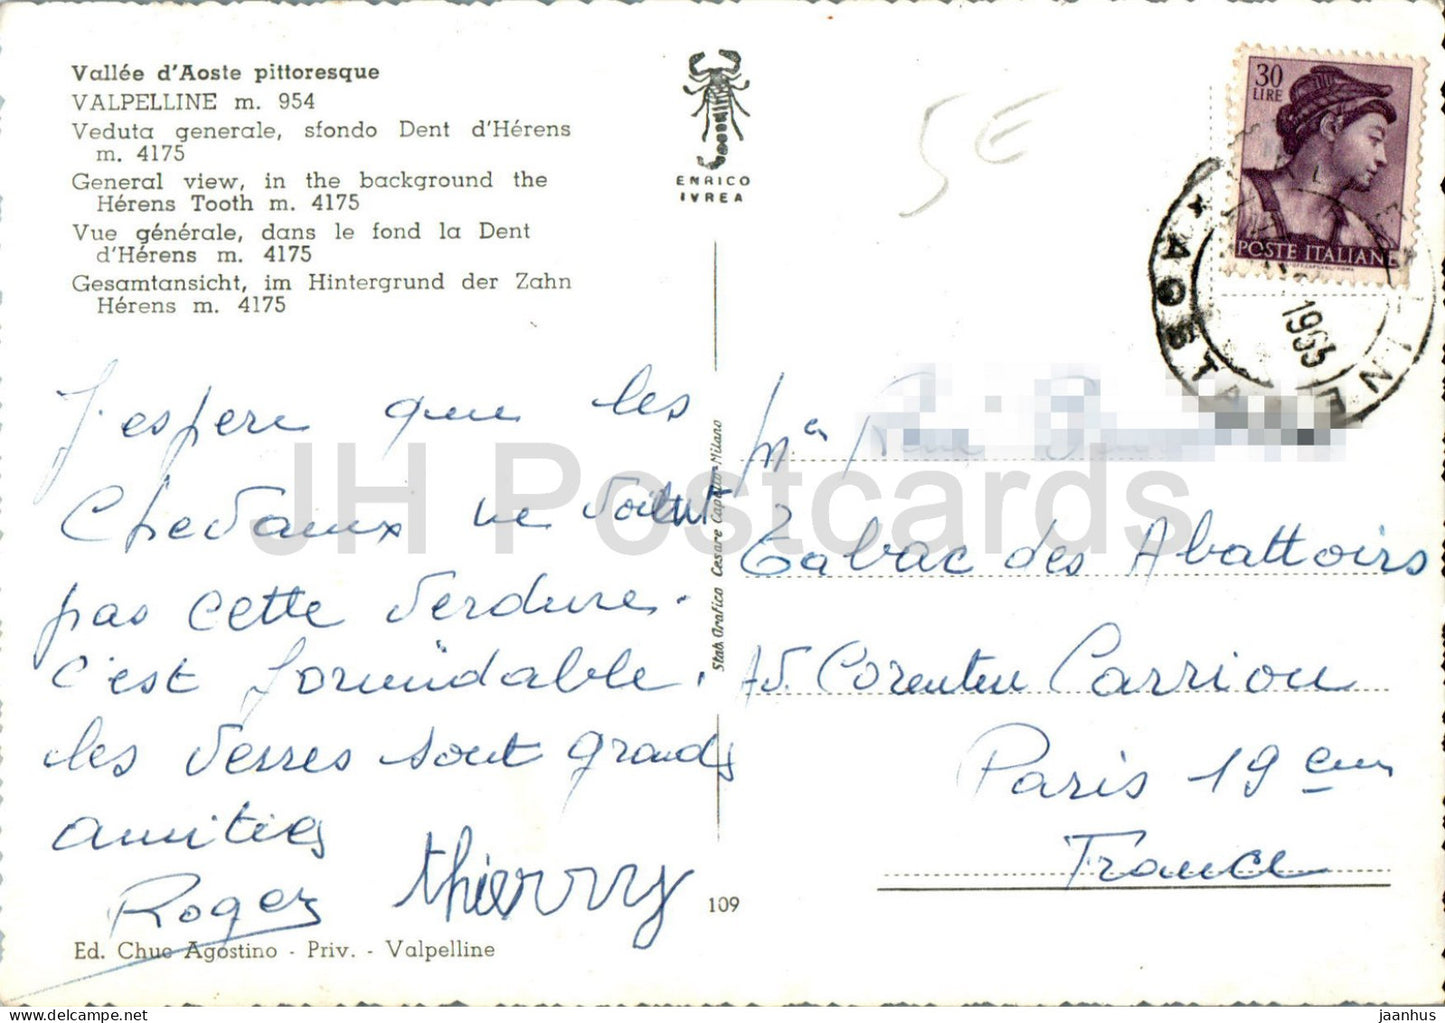 Vallée d'Aoste pittoresque
VALPELLINE m. 954
Veduta generale, sfondo Dent d'Hérens
m. 4175
General view, in the background the
Hérens Tooth m. 4175
Vue générale, dans le fond la Dent
d'Hérens m. 4175
Gesamtansicht, im Hintergrund der Zahn
Hérens m. 4175
ENRICO
IVREA
5€
30
LIRE
POSTE ITALIANE
AOSTA
1965
J'espere que les
Chevaux ne voient
pas cette verdure.
c'est formidable.
les verres sont grands
amities
Roger thierrry
Ed. Chuc Agostino - Priv. - Valpelline
109
Stab. Grafico Cesare Capello - Milano
Mr
Tabac des Abattoirs
Av. Corentin Carriou
Paris 19 em
France
JH Postcards
jaanhus